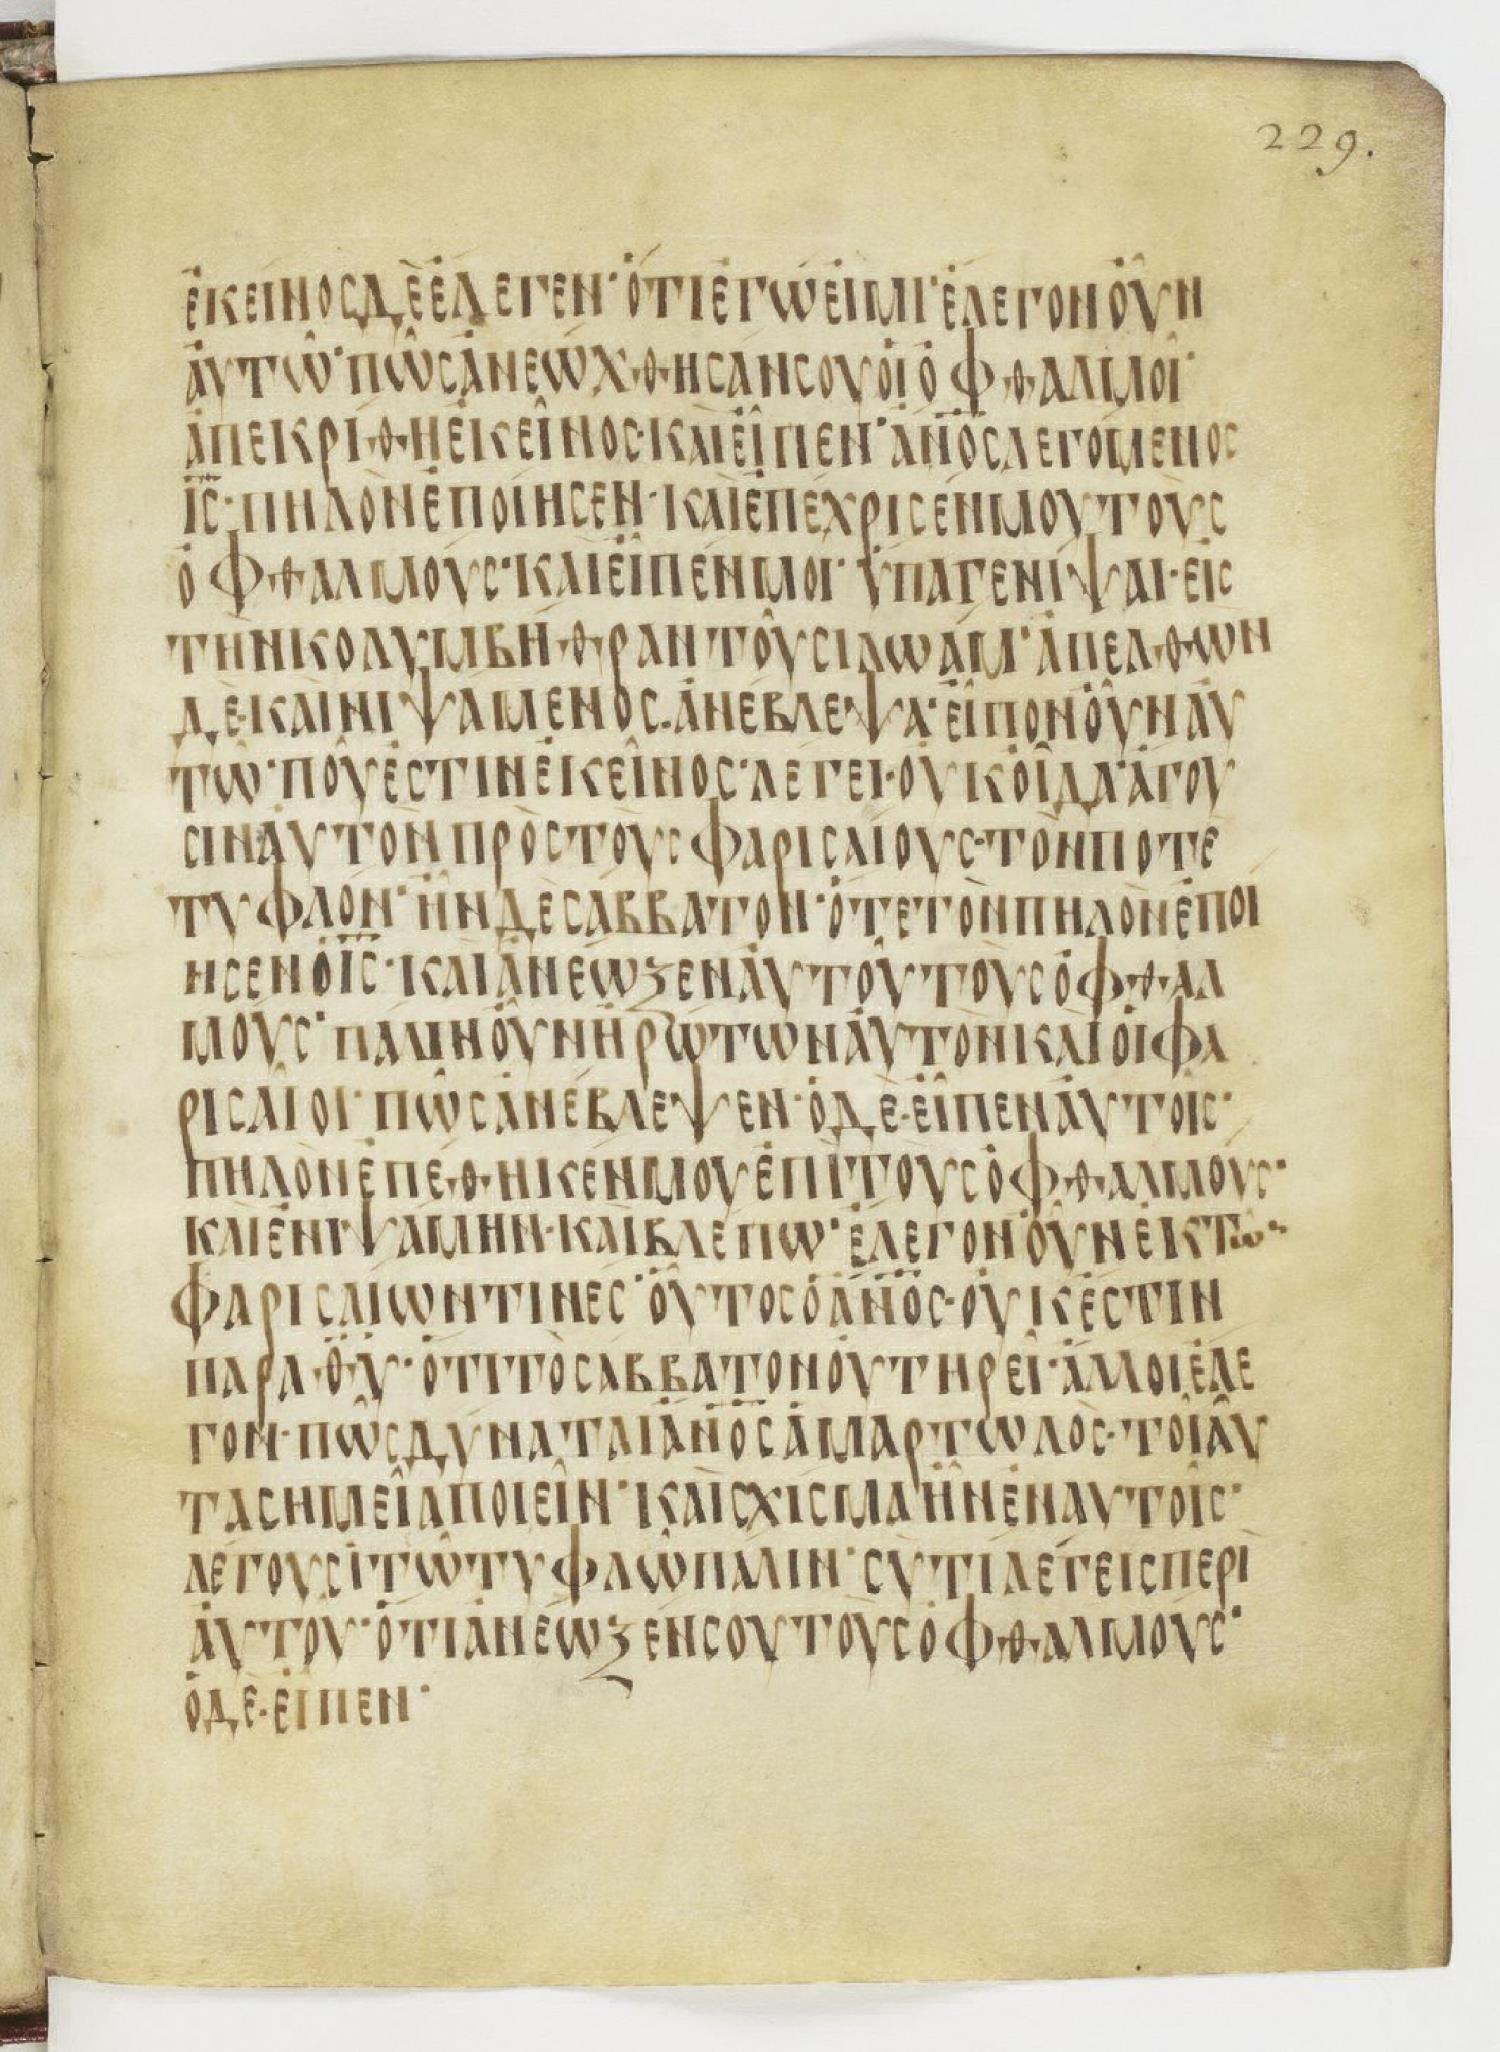 229.
ἐκεῖνοςδὲἔλεγεν·ὅτιἐγώεἰμι·ἔλεγονοὖν
αὐτῶ·πῶςἀνεώχθησάνσουοἱὀφθαλμοί·
ἀπεκρίθηἐκεῖνος·καὶεἶπεν·ἄν̅ο̅ςλεγόμενος
ι̅ς̅·πηλὸνἐποίησεν·καὶἐπέχρισενμουτοὺς
ὀφθαλμούς·καὶεἶπένμοι·ὕπαγενίψαι·εἰς
τὴνκολυμβήθραντοῦσιλωάμ·ἀπελθὼν
δὲ·καὶνιψάμενος·ἀνέβλεψα·εἶπονοὖναὐ
τῶ·ποῦἐστινἐκεῖνος·λέγει·οὐκοῖδα·ἄγου
σιναὐτὸνπρὸςτοὺςφαρισαίους·τόνποτε
τυφλόν·ἦνδὲσάββατον·ὅτετὸνπηλὸνἐποί
ησενὁι̅ς̅·καὶἀνέωξεναὐτοῦτοὺςὀφθαλ
μούς·πάλινοὖνἠρώτωναὐτὸνκαὶοἱφα
ρισαῖοι·πῶςἀνέβλεψεν·ὁδὲ·εἶπεναὐτοῖς·
πηλὸνἐπέθηκένμουἐπὶτοὺςὀφθαλμούς·
καὶἐνιψάμην·καὶβλέπω·ἔλεγονοὖνἐκτῶ·
φαρισαίωντινές·οὗτοςὁἄν̅ο̅ς·οὐκἔστιν
παρὰθ̅υ̅·ὅτιτὸσάββατονοὐτηρεῖ·ἄλλοιἔλε
γον·πῶςδύναταιἄν̅ο̅ςἁμαρτωλὸς·τοιαῦ
τασημεῖαποιεῖν·καὶσχίσμαἦνἐναὐτοῖς·
λέγουσιτῶτυφλῶπάλιν·σὺτίλέγειςπερὶ
αὐτοῦ·ὅτιἀνέωξένσουτοὺςὀφθαλμούς·
ὁδὲ·εἶπεν·